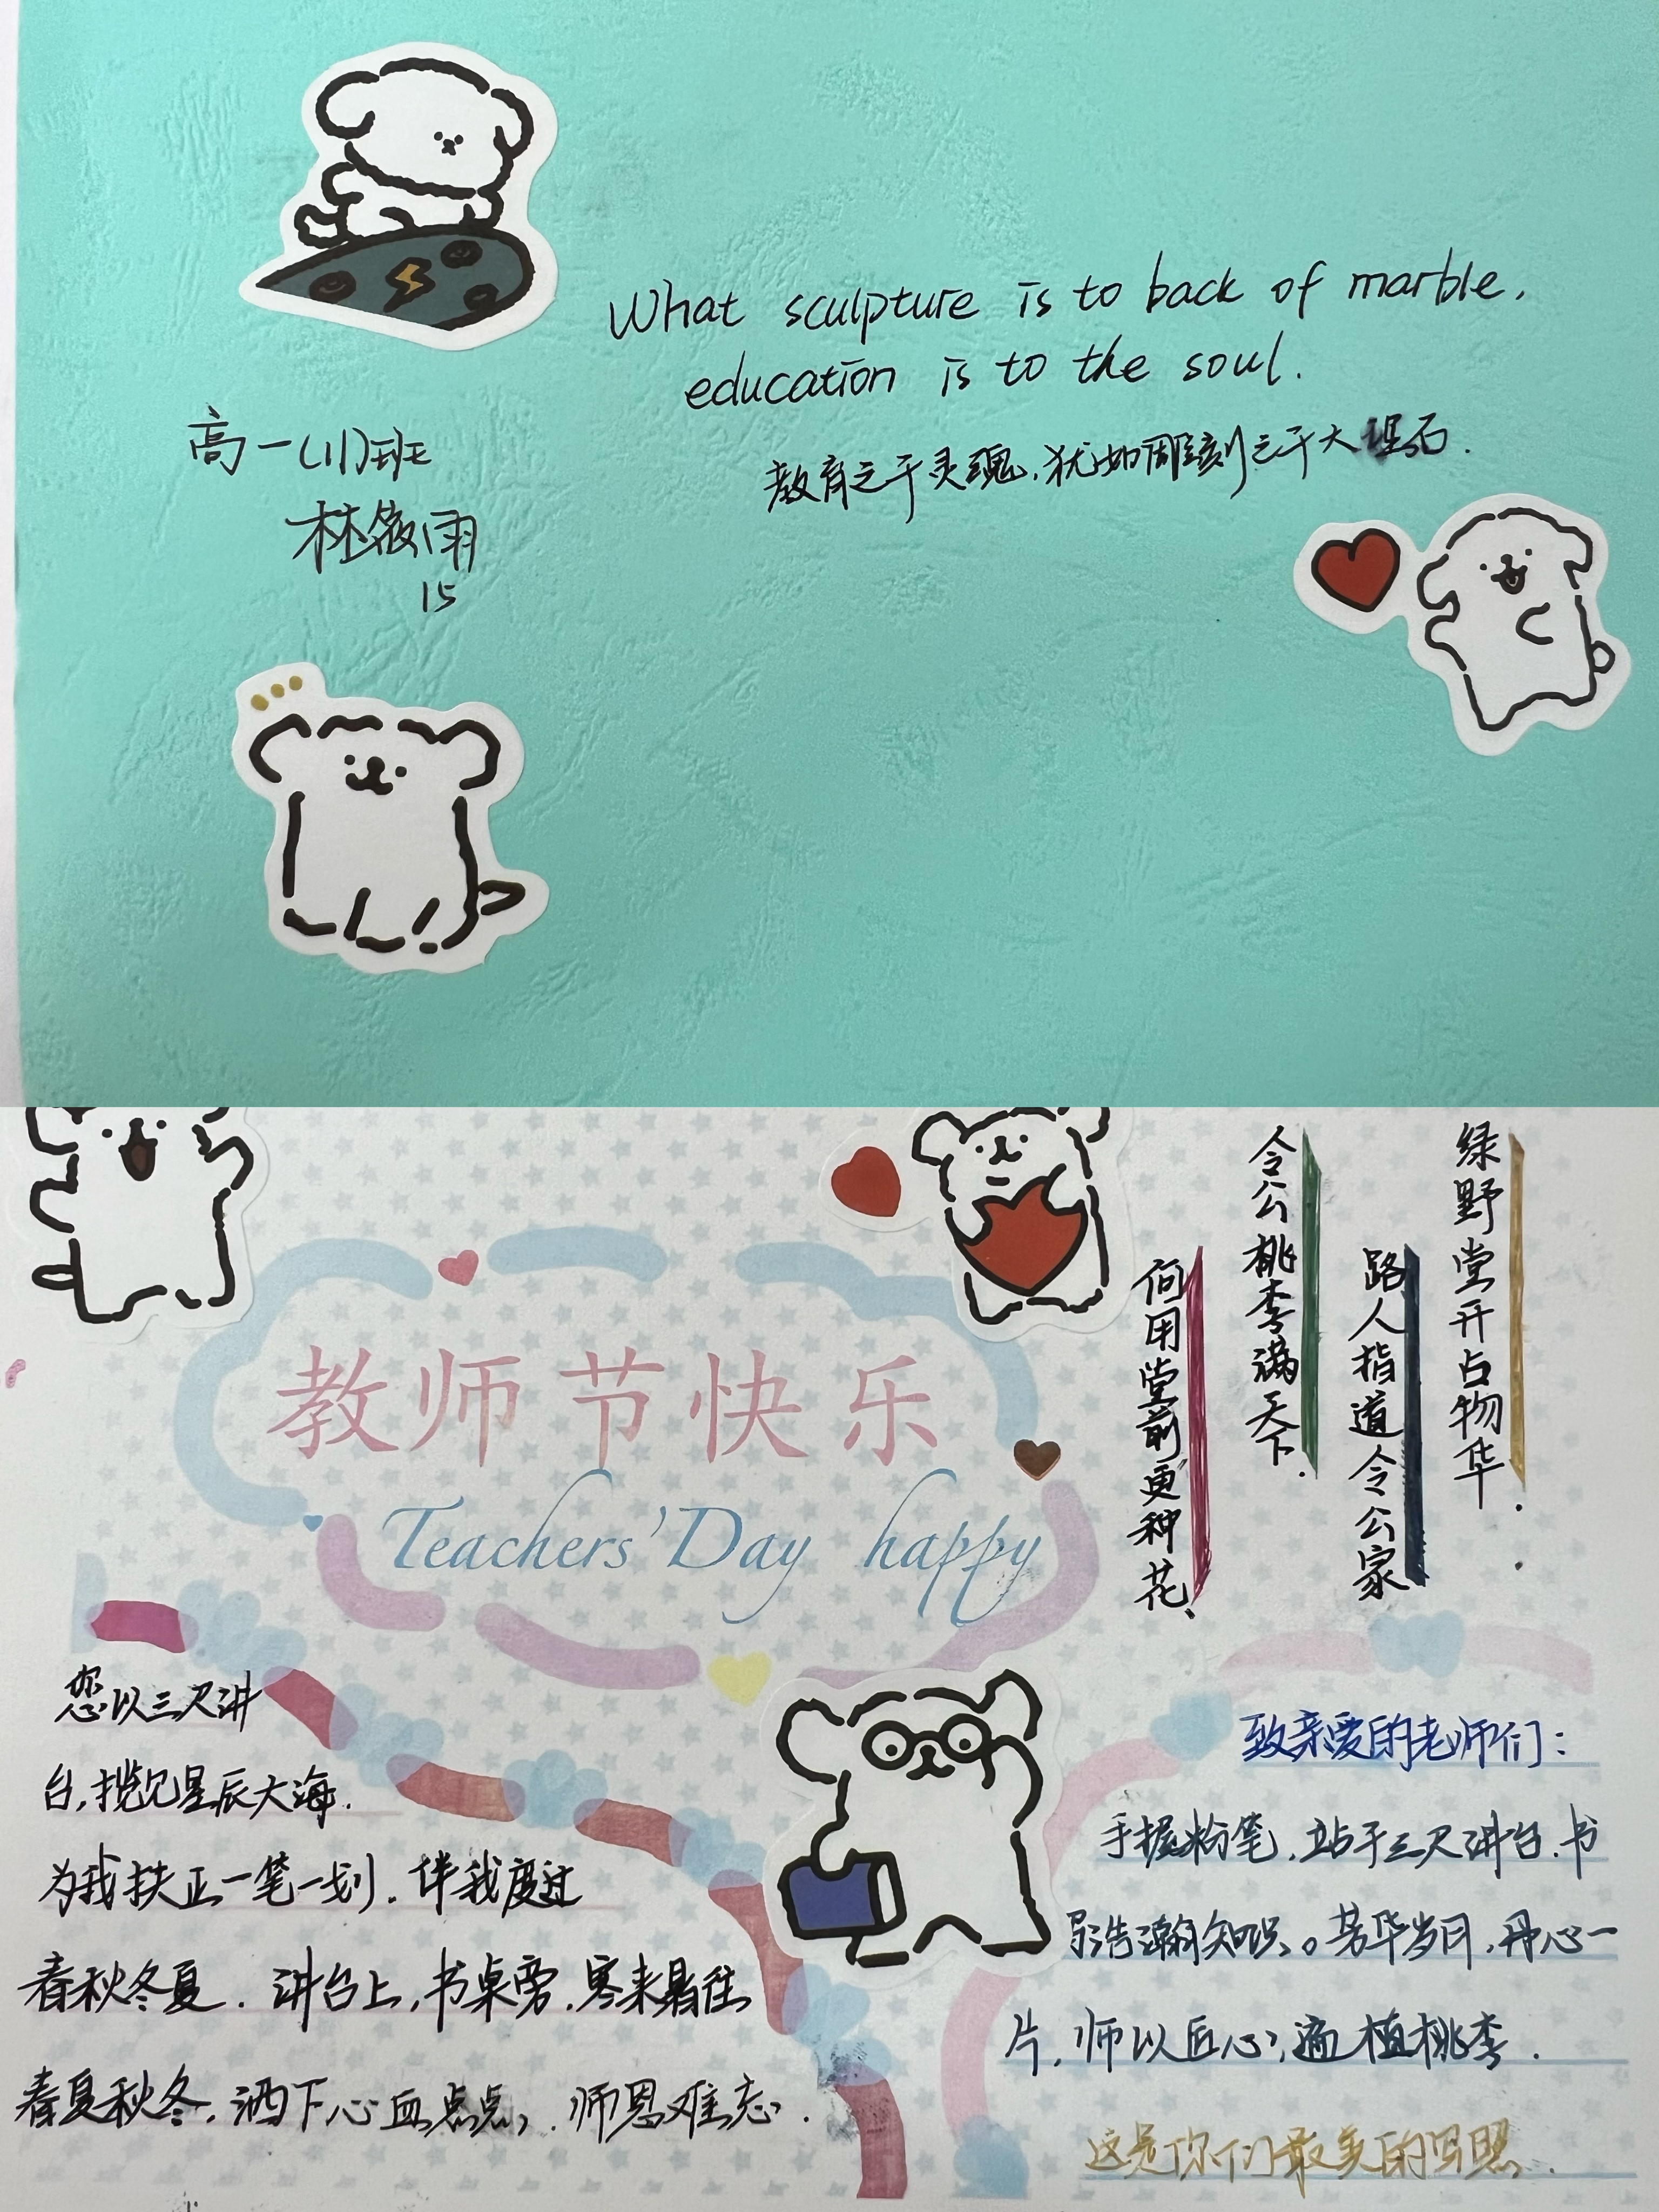 What sculpture is to back of marble,
education is to the soul.
教育之于灵魂,犹如雕刻之于大理石.
高一(11)班
林筱雨
15
绿野堂开占物华.
路人指道令公家
令公桃李满天下.
何用堂前更种花.
教师节快乐
Teachers' Day happy
您以三尺讲
台,揽见星辰大海.
为我扶正一笔一划.伴我度过
春秋冬夏.讲台上,书桌旁.寒来暑往
春夏秋冬.洒下心血点点,.师恩难忘.
致亲爱的老师们:
手握粉笔.站于三尺讲台.书
写浩瀚知识。芳华岁月,丹心一
片,师以匠心,遍植桃李.
这是你们最美的写照.